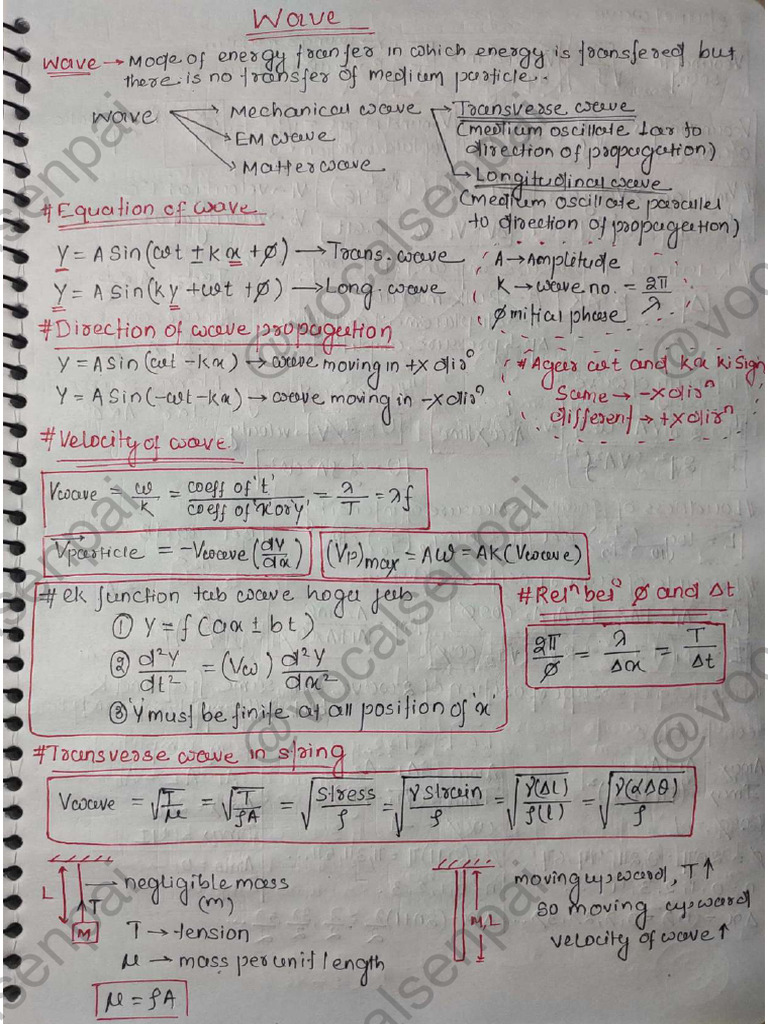 Wave
Wave → Mode of energy transfer in which energy is transfered but
there is no transfer of medium particle.
Wave → Mechanical wave → Transverse wave
(medium oscillate lar to
direction of propagation)
→ EM wave
→ Matter wave
→ Longitudinal wave
(medium oscillate parallel
to direction of propagation)
#Equation of wave
Y = A Sin(ωt ± kx + φ) → Trans. wave
Y = A Sin(ky + ωt + φ) → Long. wave
A → Amplitude
K → wave no. = 2π/λ
φ initial phase
#Direction of wave propagation
Y = A Sin(ωt - kx) → wave moving in +X dirⁿ
Y = A Sin(-ωt - kx) → wave moving in -X dirⁿ
#Agar ωt and kx ki sign
Same → -X dirⁿ
different → +X dirⁿ
#Velocity of wave
Vwave = ω/K = coeff of 't'/coeff of 'x' or 'y' = λ/T = λf
Vparticle = -Vwave(dy/dx)
(Vp)max = Aω = AK(Vwave)
#ek function tab wave hoga jab
① Y = f(ax ± bt)
② d²Y/dt² = (Vω) d²Y/dx²
③ 'Y must be finite at all position of 'x'
#Relⁿ betⁿ φ and Δt
2π/φ = λ/Δx = T/Δt
#Transverse wave in string
Vwave = √(T/μ) = √(T/ρA) = √(Stress/ρ) = √(Y Strain/ρ) = √(Y(Δl)/ρ(l)) = √(Y(αΔθ)/ρ)
L
T
M
→ negligible mass
(m)
T → tension
μ → mass per unit length
μ = ρA
M,L
moving upward, T↑
so moving upward
velocity of wave ↑
@vocalsenpai